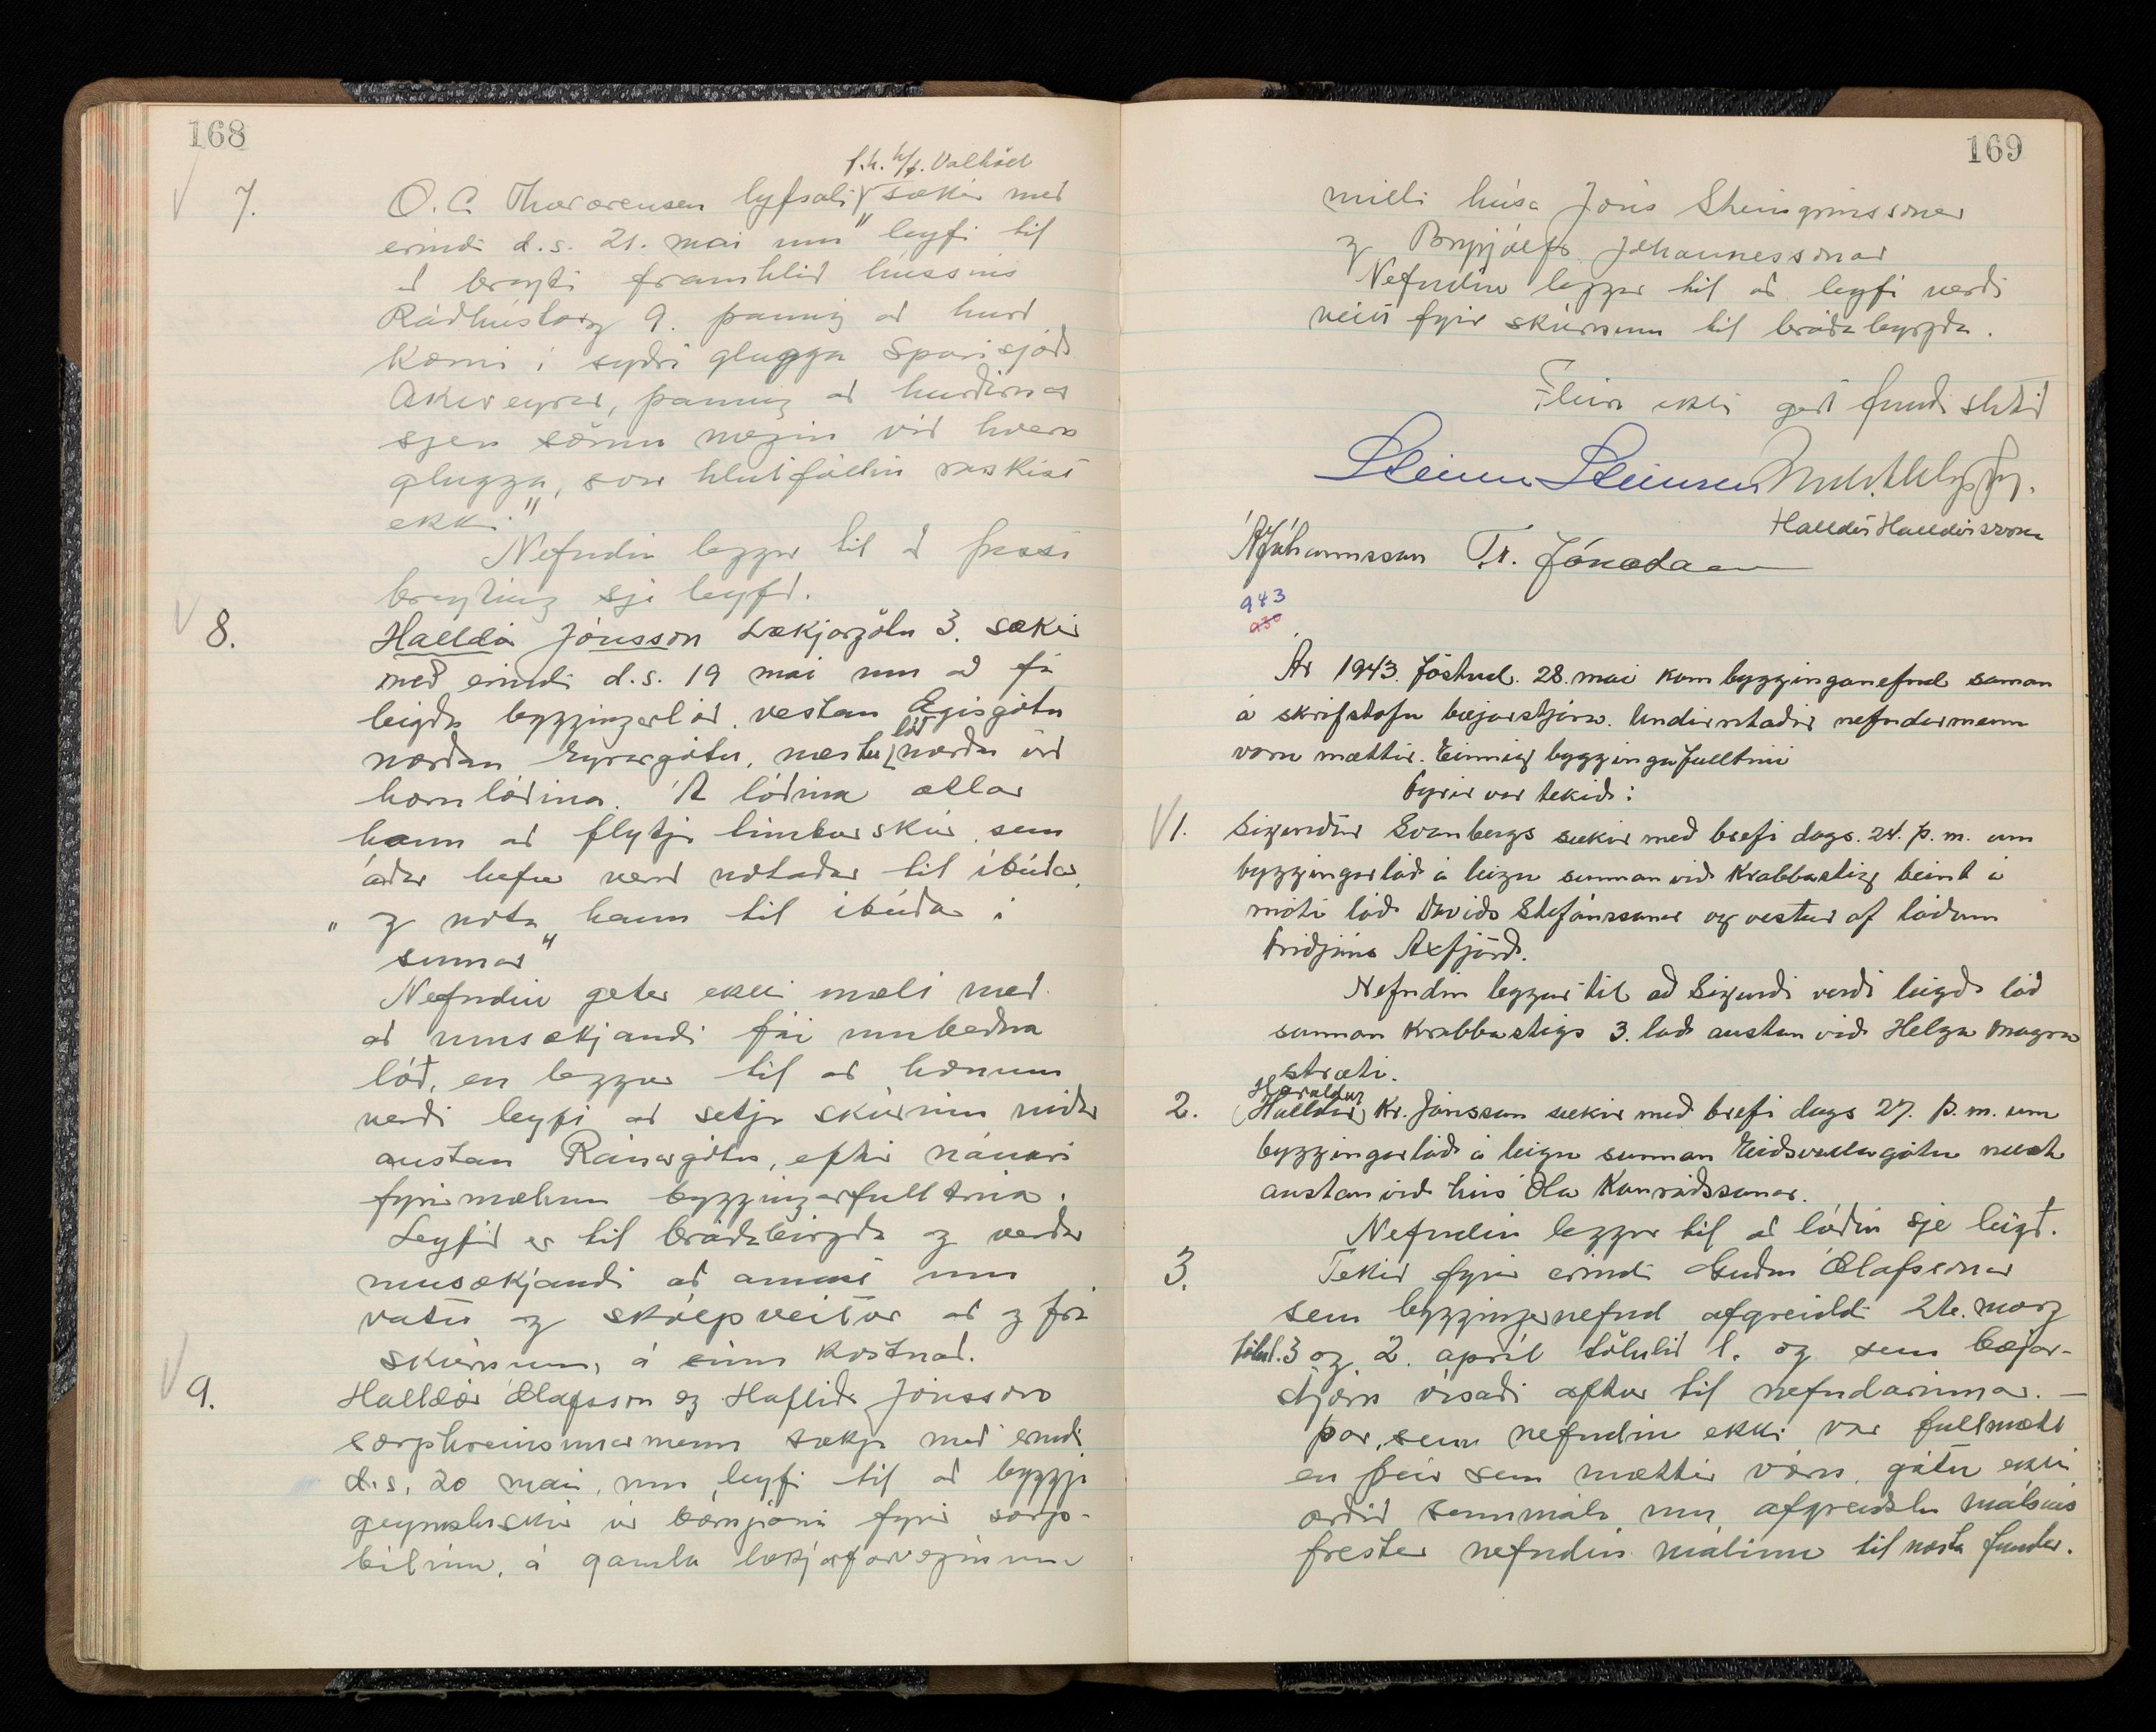 168
f.h. h/f. Valhöll
7. O.C. Thorarensen lyfsali sækir með
erindi d.s. 21. mai um "leyfi til
að breyta framhlið hússins
Ráðhústorg 9. þannig að hurð
komi í syðri glugga Sparisjóðs
Akureyrar, þannig að hurðirnar
sjeu sömu megin við hvern
glugga, svo hlutföllin raskist
ekki."
Nefndin leggur til að þessi
breyting sje leyfð.
8. Halldór Jónsson Lækjargötu 3. sækir
með erindi d.s. 19 mai um að fá
leigða byggingarlóð vestan Ægisgötu
norðan Eyrargötu, næstu lóð norðan við
hornlóðina. Á lóðina ætlar
hann að flytja timburskúr sem
áður hefur verið notaður til íbúðar,
"og nota hann til íbúðar í
sumar"
Nefndin getur ekki mælt með
að umsækjandi fái umbeðna
lóð, en leggur til að honum
verði leyft að setja skúrinn niður
austan Ránargötu, eftir nánari
fyrirmælum byggingarfulltrúa.
Leyfið er til bráðabirgða og verður
umsækjandi að annast um
vatns og skólpveitur að og frá
skúrnum, á sinn kostnað.
9. Halldór Ólafsson og Hafliði Jónsson
sorphreinsunarmenn sækja með erindi
d.s. 20 mai, um leyfi til að byggja
geymsluskúr úr bárujárni fyrir sorp-
bílinn, á gamla lækjarfarveginum
169
milli húsa Jóns Steingrímssonar
og Brynjólfs Jóhannessonar
Nefndin leggur til að leyfi verði
veitt fyrir skúrnum til bráðabyrgða.
Fleira ekki gert fundi slitið
Steinn Steinsen
Halldór Halldórsson
ÁJóhannsson Tr. Jónada
943
930
Ár 1943. föstud. 28. mai kom bygginganefnd saman
á skrifstofu bæjarstjóra. Undirritaðir nefndarmenn
voru mættir. Einnig byggingafulltrúi
Fyrir var tekið:
1. Sigurður Svanbergs sækir með brefi dags. 24. þ.m. um
byggingarlóð á leigu sunnan við Krabbastíg beint á
móti lóð Davíðs Stefánssonar og vestur af lóðum
Friðjóns Axfjörð.
Nefndin leggur til að Sigurði verði leigð lóð
sunnan Krabbastígs 3. lóð austan við Helga magra
stræti.
Haraldur
2. (Halldór) Kr. Jónsson sækir með brefi dags 27. þ.m. um
byggingarlóð á leigu sunnan Eiðsvallagötu næst
austan við hús Óla Konráðssonar.
Nefndin leggur til að lóðin sje leigð.
3. Tekið fyrir erindi Guðm Ólafssonar
sem bygginganefnd afgreiddi 26. marz
tölul. 3 og 2. apríl tölulið 1. og sem bæjar-
stjórn vísaði aftur til nefndarinnar. —
Þar sem nefndin ekki var fullmætt
en þeir sem mættir voru, gátu ekki
orðið sammála um afgreiðslu málsins
frestar nefndin málinu til næsta fundar.